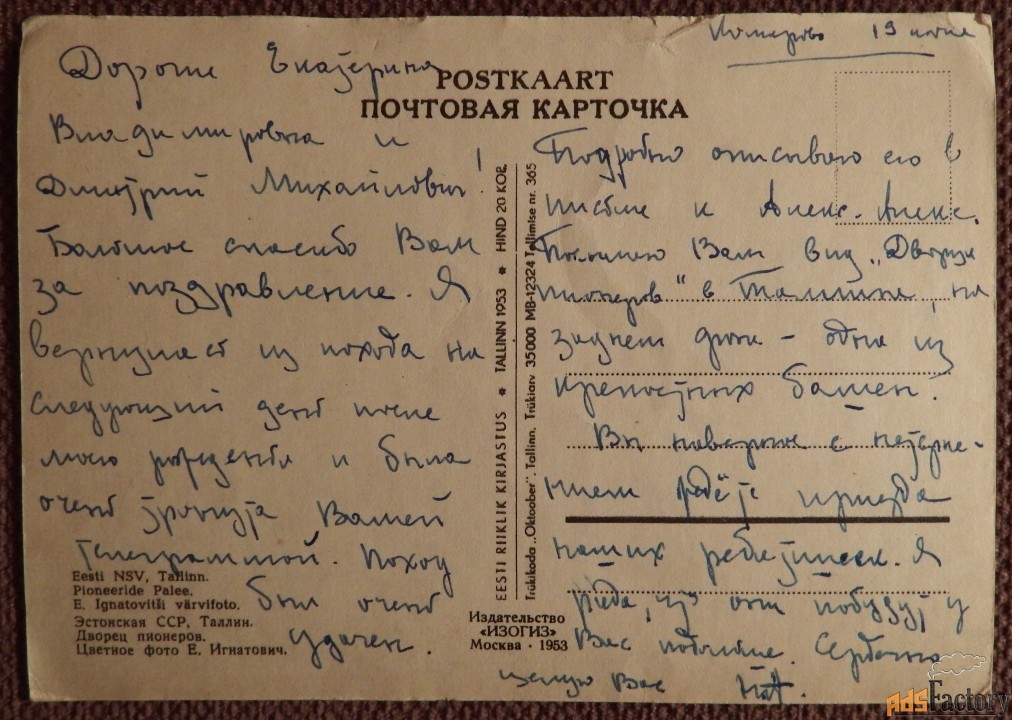 Кемерово 19 июня
POSTKAART
ПОЧТОВАЯ КАРТОЧКА
Дорогие Екатерина
Владимировна и
Дмитрий Михайлович!
Большое спасибо Вам
за поздравление. Я
вернулась из похода на
следующий день после
моего рождения и была
очень тронута Вашей
телеграммой. Поход
был очень
удачен.
Eesti NSV, Tallinn.
Pioneeride Palee.
E. Ignatovitši värvifoto.
Эстонская ССР, Таллин.
Дворец пионеров.
Цветное фото Е. Игнатович.
EESTI RIIKLIK KIRJASTUS * TALLINN 1953 * HIND 20 KOP.
Trükikoda „Oktoober". Tallinn. Trükiarv 35000 MB-12324 Tellimise nr. 365
Издательство
«ИЗОГИЗ»
Москва · 1953
Подробно описываю его в
письме к Алекс. Алекс.
Посылаю Вам вид „Дворца
пионеров" в Таллине, на
заднем фоне - одна из
крепостных башен.
Вы наверное с нетерпе-
нием ждёте приезда
наших ребятишек. Я
рада, что они побудут у
Вас подольше. Сердечно
целую Вас Ната.
AdsFactory